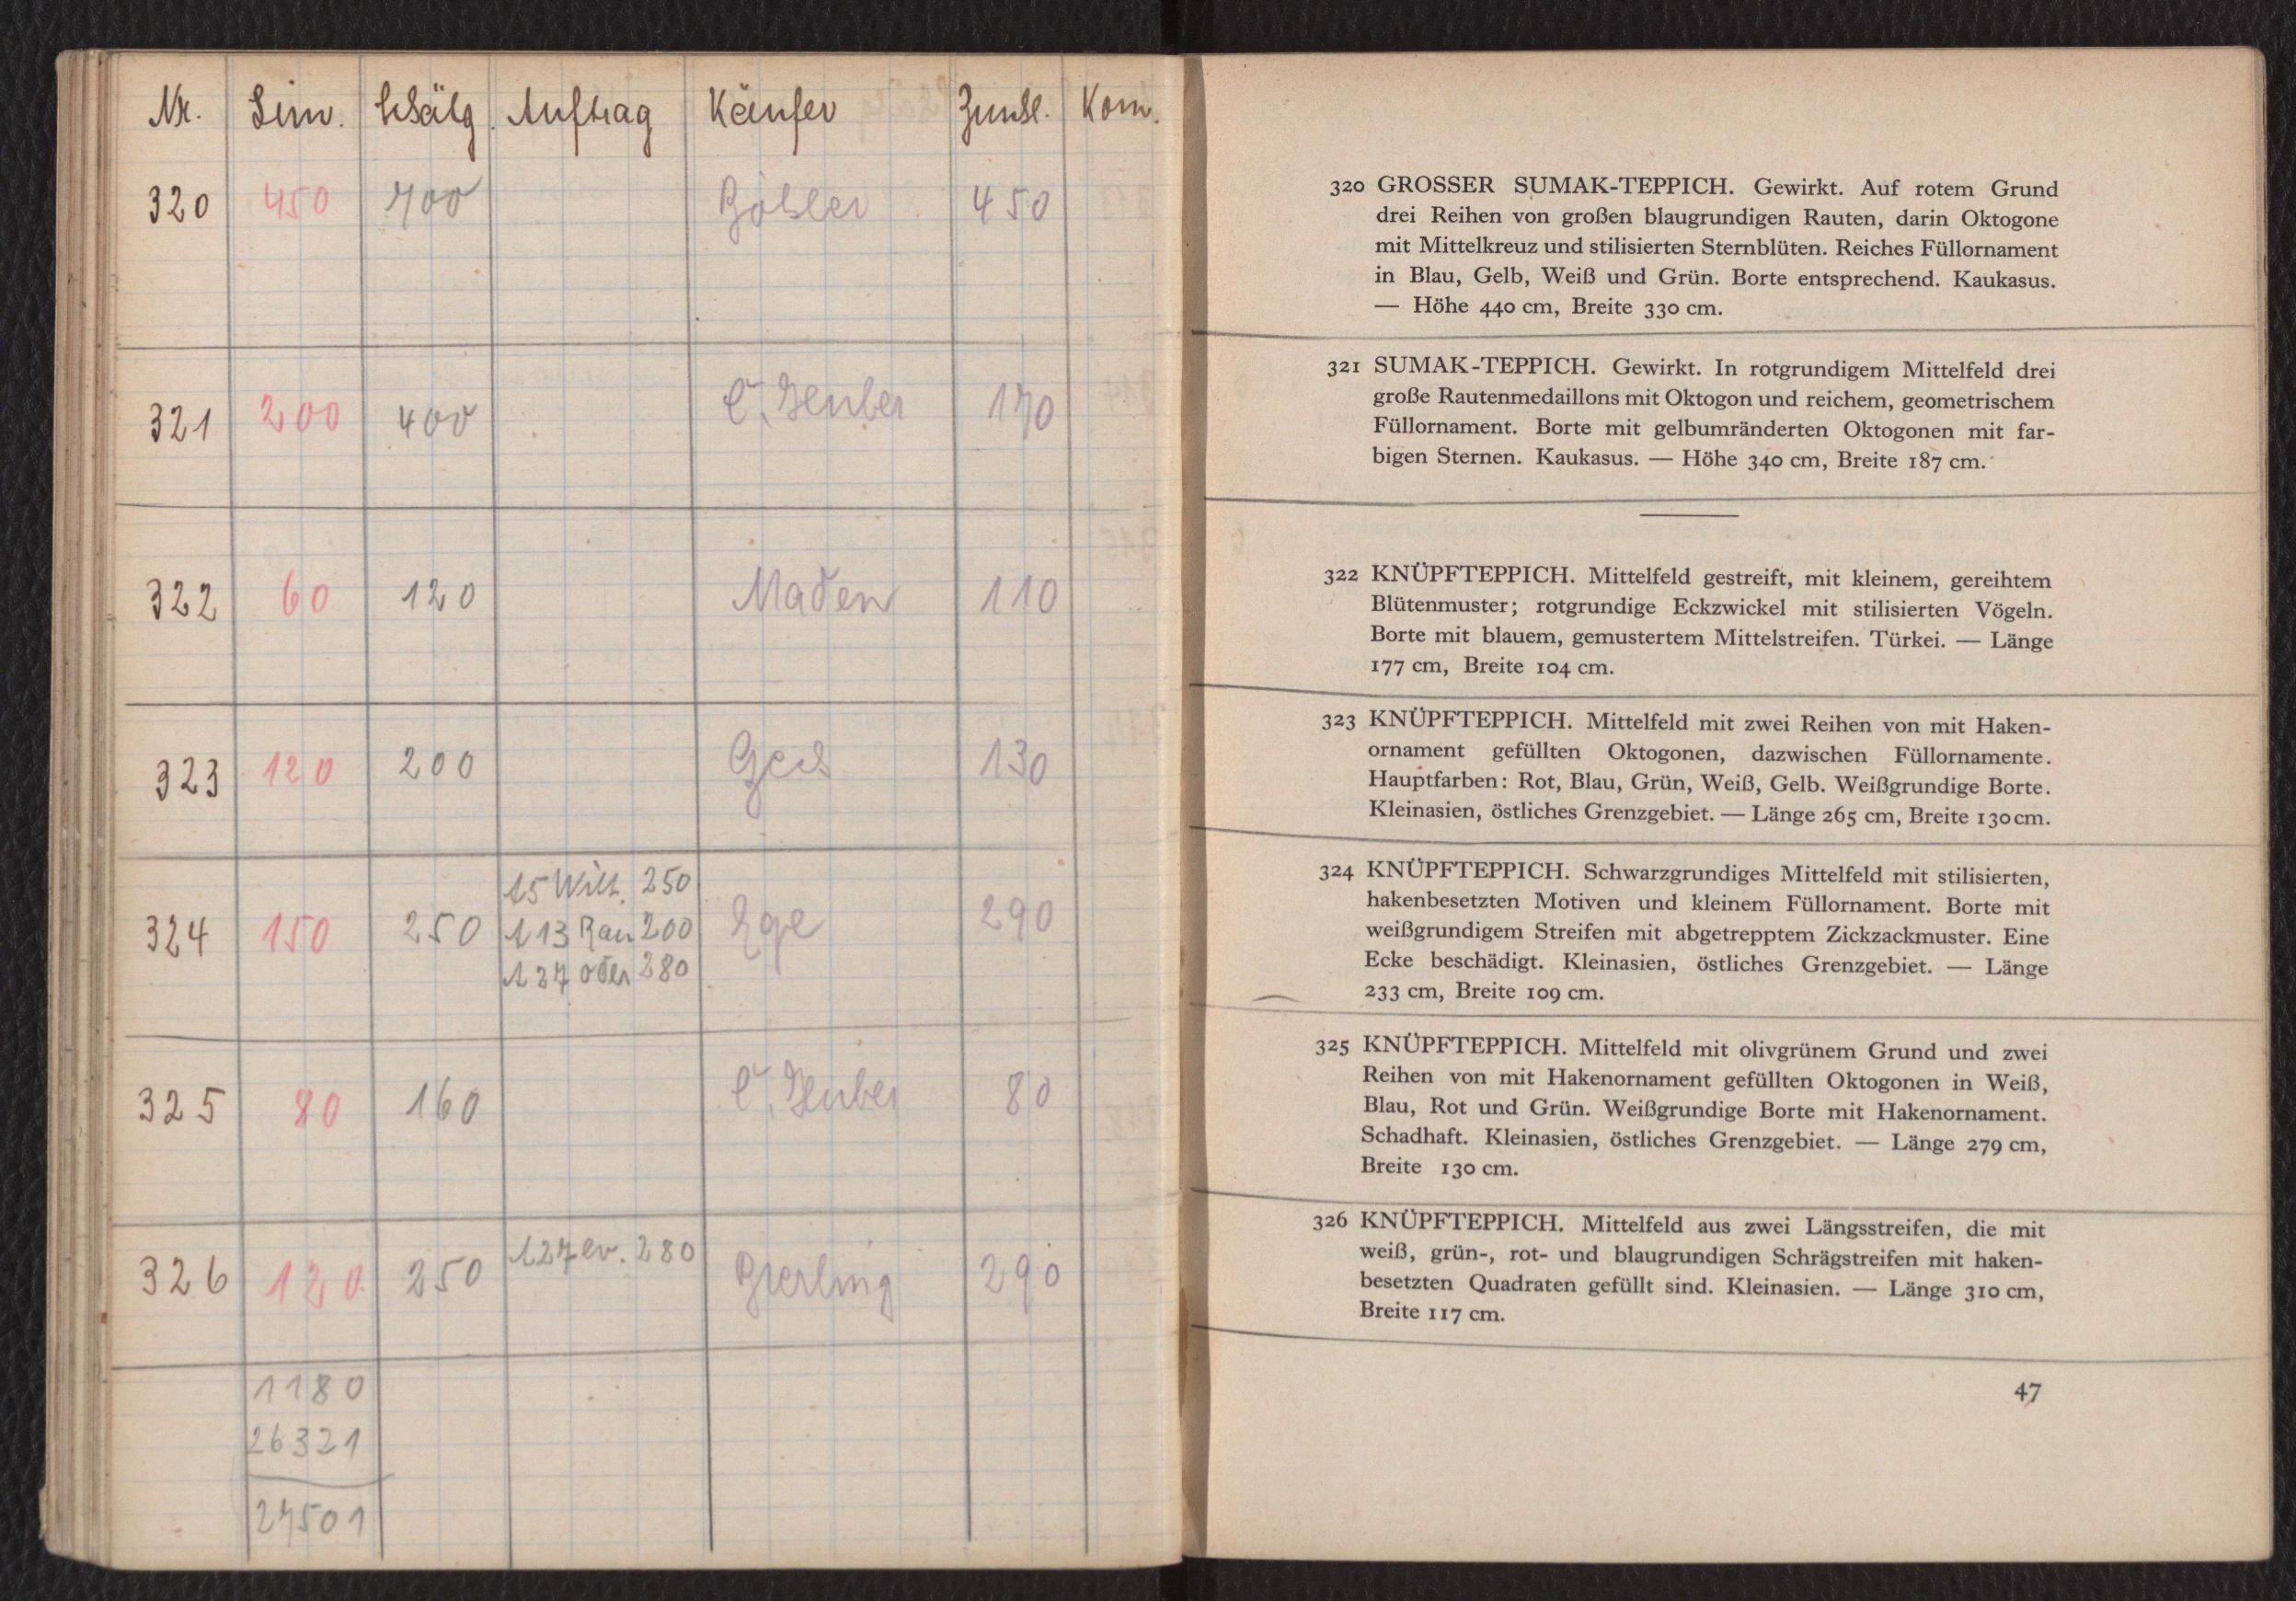 Nr. Lim. Schätzg. Auftrag Käufer Zuschl. Kom.
320 450 700 Böhler 450
321 200 400 C. Huber 170
322 60 120 Maden 110
323 120 200 Geis 130
15 Will. 250
324 150 250 113 Rau 200 Ege 290
127 oder 280
325 80 160 C. Huber 80
326 120 250 127 ev. 280 Gierling 290
1180
26321
27501
320 GROSSER SUMAK-TEPPICH. Gewirkt. Auf rotem Grund
drei Reihen von großen blaugrundigen Rauten, darin Oktogone
mit Mittelkreuz und stilisierten Sternblüten. Reiches Füllornament
in Blau, Gelb, Weiß und Grün. Borte entsprechend. Kaukasus.
— Höhe 440 cm, Breite 330 cm.
321 SUMAK-TEPPICH. Gewirkt. In rotgrundigem Mittelfeld drei
große Rautenmedaillons mit Oktogon und reichem, geometrischem
Füllornament. Borte mit gelbumränderten Oktogonen mit far-
bigen Sternen. Kaukasus. — Höhe 340 cm, Breite 187 cm.
322 KNÜPFTEPPICH. Mittelfeld gestreift, mit kleinem, gereihtem
Blütenmuster; rotgrundige Eckzwickel mit stilisierten Vögeln.
Borte mit blauem, gemustertem Mittelstreifen. Türkei. — Länge
177 cm, Breite 104 cm.
323 KNÜPFTEPPICH. Mittelfeld mit zwei Reihen von mit Haken-
ornament gefüllten Oktogonen, dazwischen Füllornamente.
Hauptfarben: Rot, Blau, Grün, Weiß, Gelb. Weißgrundige Borte.
Kleinasien, östliches Grenzgebiet. — Länge 265 cm, Breite 130 cm.
324 KNÜPFTEPPICH. Schwarzgrundiges Mittelfeld mit stilisierten,
hakenbesetzten Motiven und kleinem Füllornament. Borte mit
weißgrundigem Streifen mit abgetrepptem Zickzackmuster. Eine
Ecke beschädigt. Kleinasien, östliches Grenzgebiet. — Länge
233 cm, Breite 109 cm.
325 KNÜPFTEPPICH. Mittelfeld mit olivgrünem Grund und zwei
Reihen von mit Hakenornament gefüllten Oktogonen in Weiß,
Blau, Rot und Grün. Weißgrundige Borte mit Hakenornament.
Schadhaft. Kleinasien, östliches Grenzgebiet. — Länge 279 cm,
Breite 130 cm.
326 KNÜPFTEPPICH. Mittelfeld aus zwei Längsstreifen, die mit
weiß, grün-, rot- und blaugrundigen Schrägstreifen mit haken-
besetzten Quadraten gefüllt sind. Kleinasien. — Länge 310 cm,
Breite 117 cm.
47